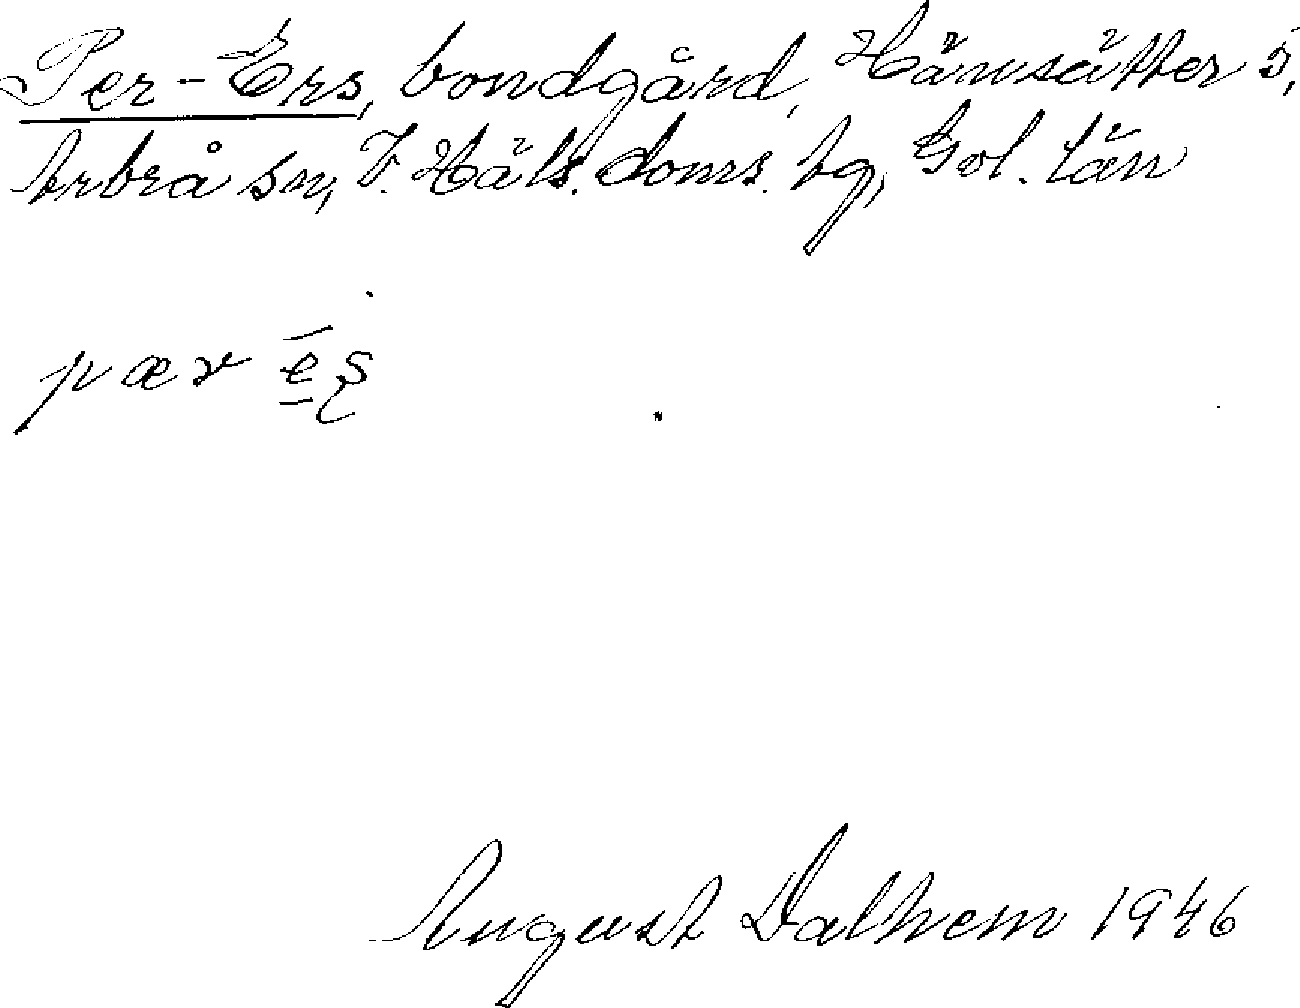 Per-Ers, bondgård, Hänsätter 5,
Arbrå sn, V. Häls. doms. hg, Gvl. län
pær e̠̅ʂ
August Dalhem 1946